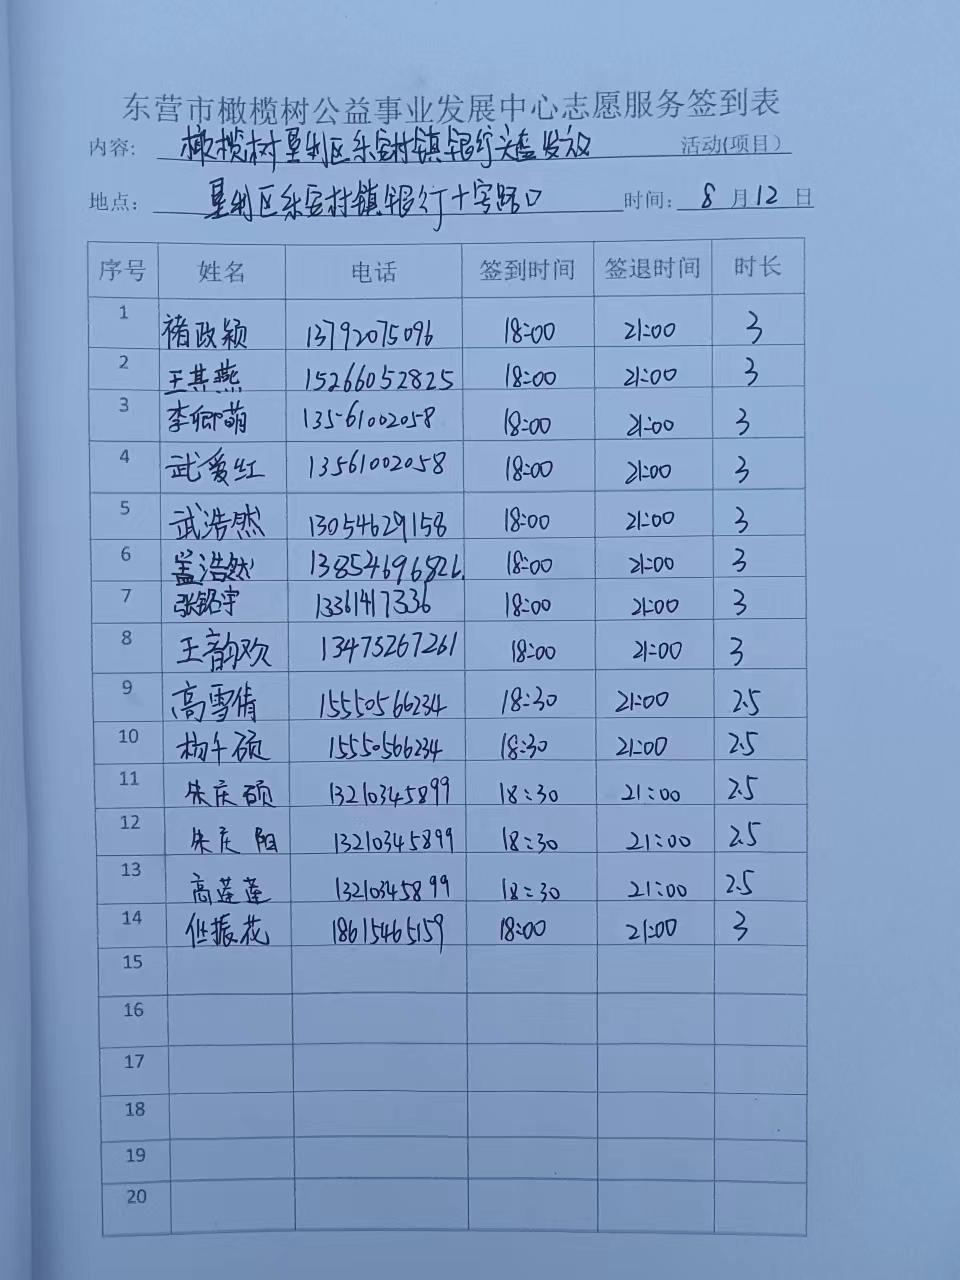 东营市橄榄树公益事业发展中心志愿服务签到表
内容: 橄榄树垦利区永安村镇银行头盔发放 活动(项目)
地点: 垦利区永安村镇银行十字路口 时间: 8月12日
序号 姓名 电话 签到时间 签退时间 时长
1 褚政颖 13792075096 18:00 21:00 3
2 王其燕 15266052825 18:00 21:00 3
3 李卿萌 13561002058 18:00 21:00 3
4 武爱红 13561002058 18:00 21:00 3
5 武浩然 13054629158 18:00 21:00 3
6 盖浩然 13854696826 18:00 21:00 3
7 张铭宇 13361417336 18:00 21:00 3
8 王韵欢 13473267261 18:00 21:00 3
9 高雪倩 15550566234 18:30 21:00 2.5
10 杨千硕 15550566234 18:30 21:00 2.5
11 朱庆硕 13210345899 18:30 21:00 2.5
12 朱庆阳 13210345899 18:30 21:00 2.5
13 高莲莲 13210345899 18:30 21:00 2.5
14 振花 18615465159 18:00 21:00 3
15
16
17
18
19
20